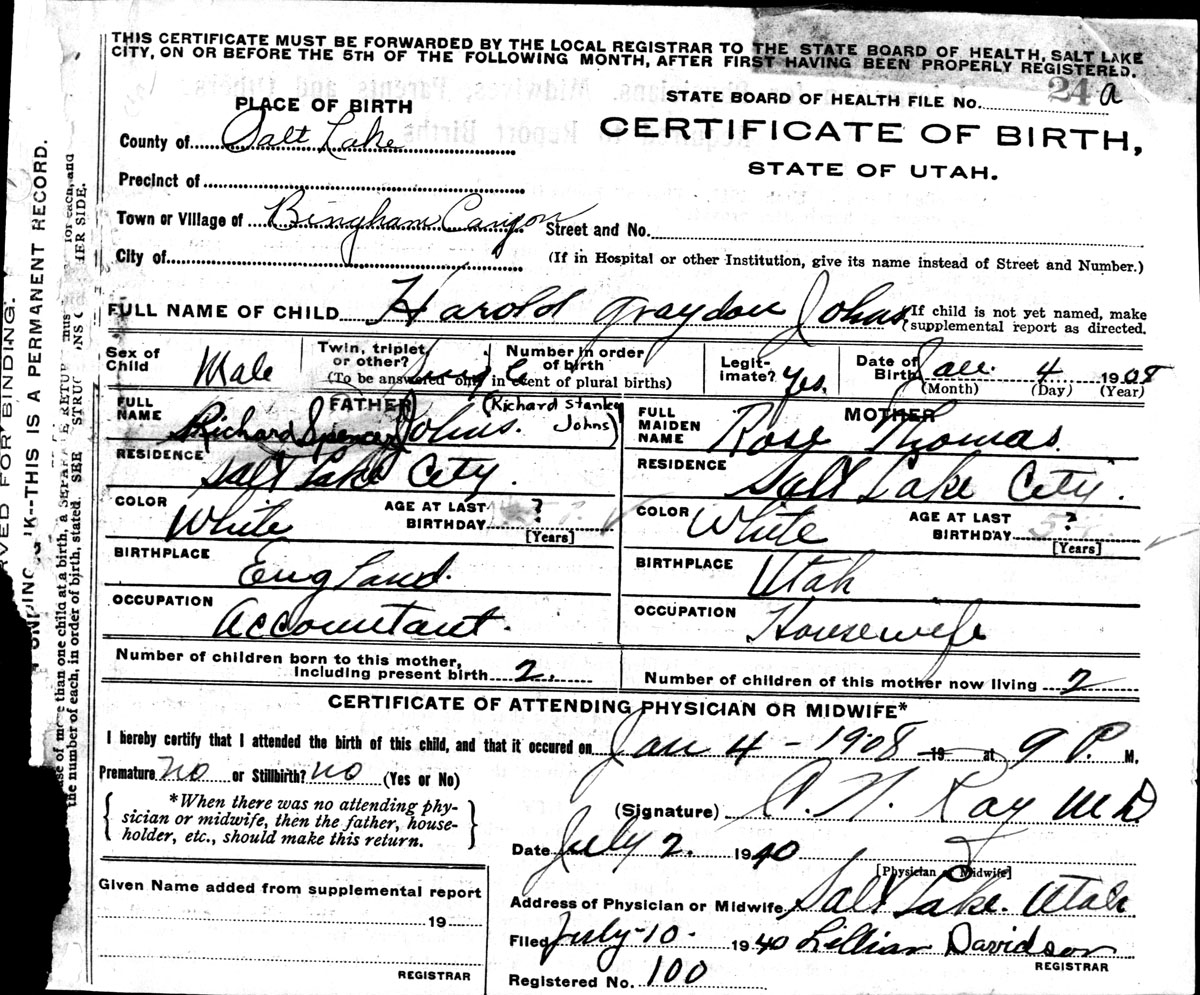 THIS CERTIFICATE MUST BE FORWARDED BY THE LOCAL REGISTRAR TO THE STATE BOARD OF HEALTH, SALT LAKE
CITY, ON OR BEFORE THE 5TH OF THE FOLLOWING MONTH, AFTER FIRST HAVING BEEN PROPERLY REGISTERED.
PLACE OF BIRTH
STATE BOARD OF HEALTH FILE No. 24 a
County of Salt Lake
CERTIFICATE OF BIRTH,
STATE OF UTAH.
Precinct of
Town or Village of Bingham Canyon Street and No.
City of (If in Hospital or other Institution, give its name instead of Street and Number.)
FULL NAME OF CHILD Harold Graydon Johns {If child is not yet named, make
supplemental report as directed.
Sex of Child Male
Twin, triplet, or other? Single
Number in order of birth
(To be answered only in event of plural births)
Legitimate? Yes.
Date of Birth Jan. 4 1908
(Month) (Day) (Year)
FATHER
FULL NAME Richard Spencer Johns. (Richard Stanley Johns)
RESIDENCE Salt Lake City.
COLOR White AGE AT LAST BIRTHDAY ?
[Years]
BIRTHPLACE England.
OCCUPATION Accountant.
MOTHER
FULL MAIDEN NAME Rose Thomas.
RESIDENCE Salt Lake City.
COLOR White AGE AT LAST BIRTHDAY ?
[Years]
BIRTHPLACE Utah
OCCUPATION Housewife
Number of children born to this mother,
including present birth 2.
Number of children of this mother now living 2
CERTIFICATE OF ATTENDING PHYSICIAN OR MIDWIFE*
I hereby certify that I attended the birth of this child, and that it occured on Jan 4 - 1908 19 at 9 P. M.
Premature no or Stillbirth? no (Yes or No)
*When there was no attending phy-
sician or midwife, then the father, house-
holder, etc., should make this return.
(Signature) C. N. Ray MD
Date July 2. 1940
[Physician or Midwife]
Given Name added from supplemental report
19
REGISTRAR
Address of Physician or Midwife Salt Lake. Utah
Filed July-10- 1940 Lillian Davidson
REGISTRAR
Registered No. 100
THIS IS A PERMANENT RECORD.